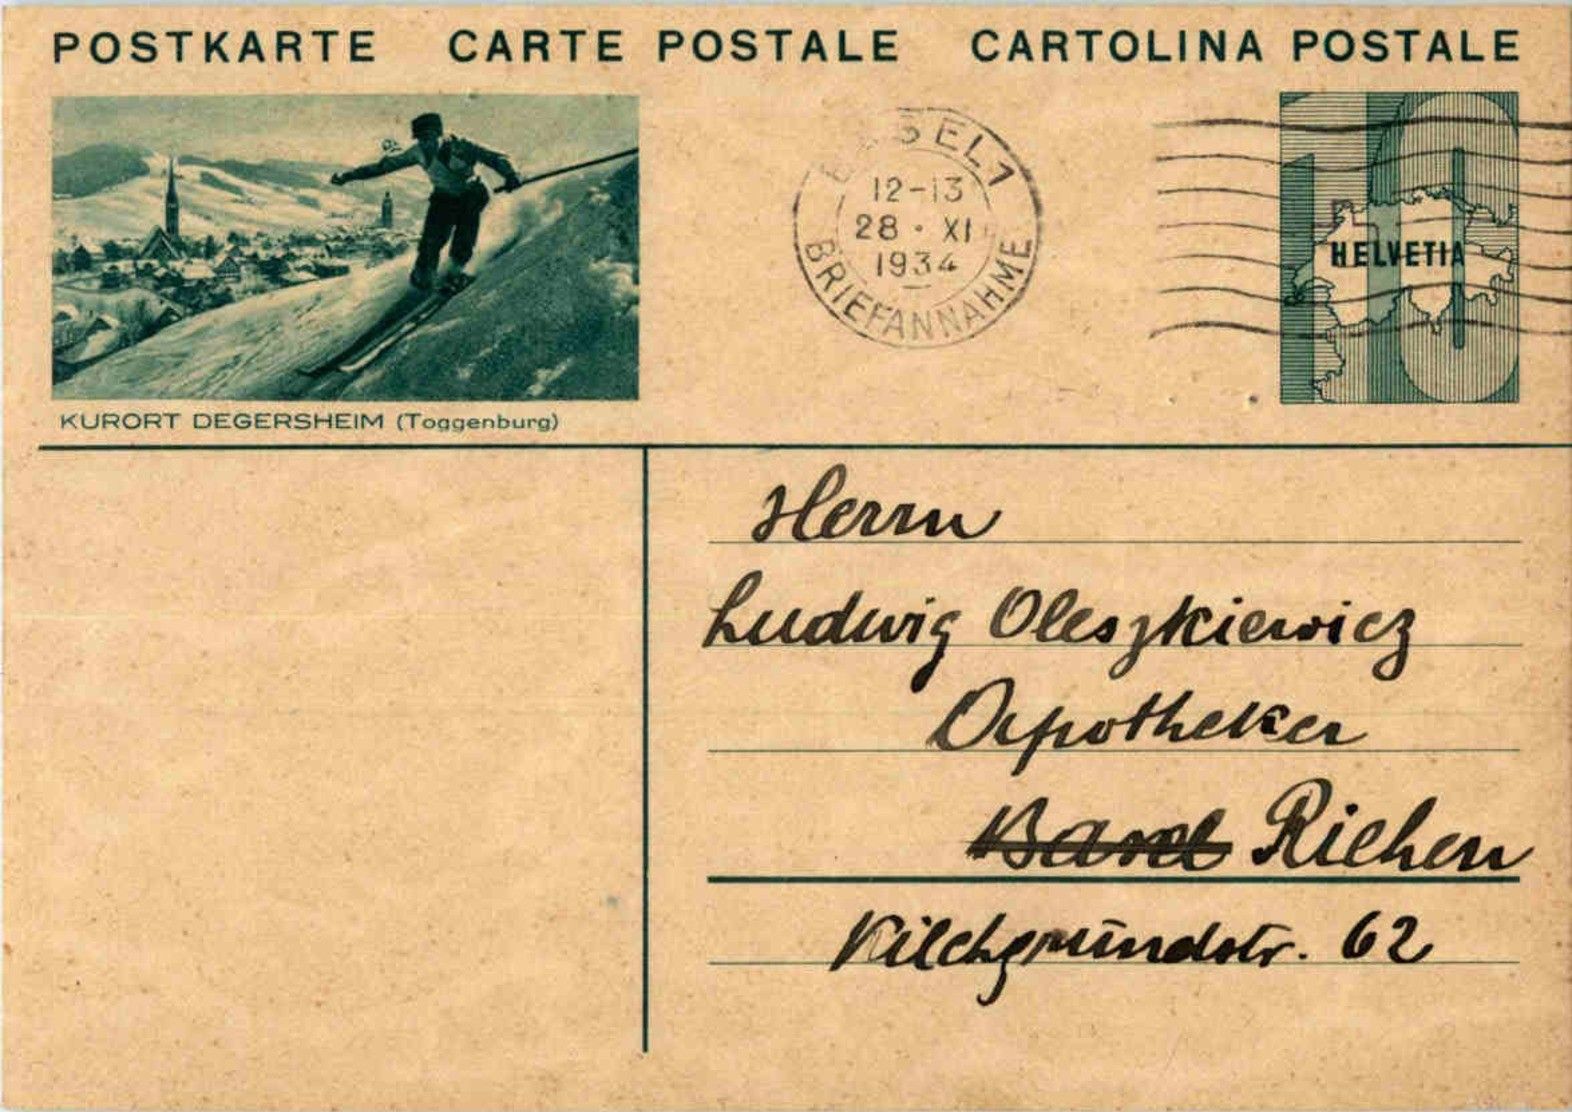 POSTKARTE CARTE POSTALE CARTOLINA POSTALE
BASEL 1
12-13
28 · XI
1934
BRIEFANNAHME
10
HELVETIA
KURORT DEGERSHEIM (Toggenburg)
Herrn
Ludwig Oleszkiewicz
Apotheker
Basel Riehen
Kilchgrundstr. 62